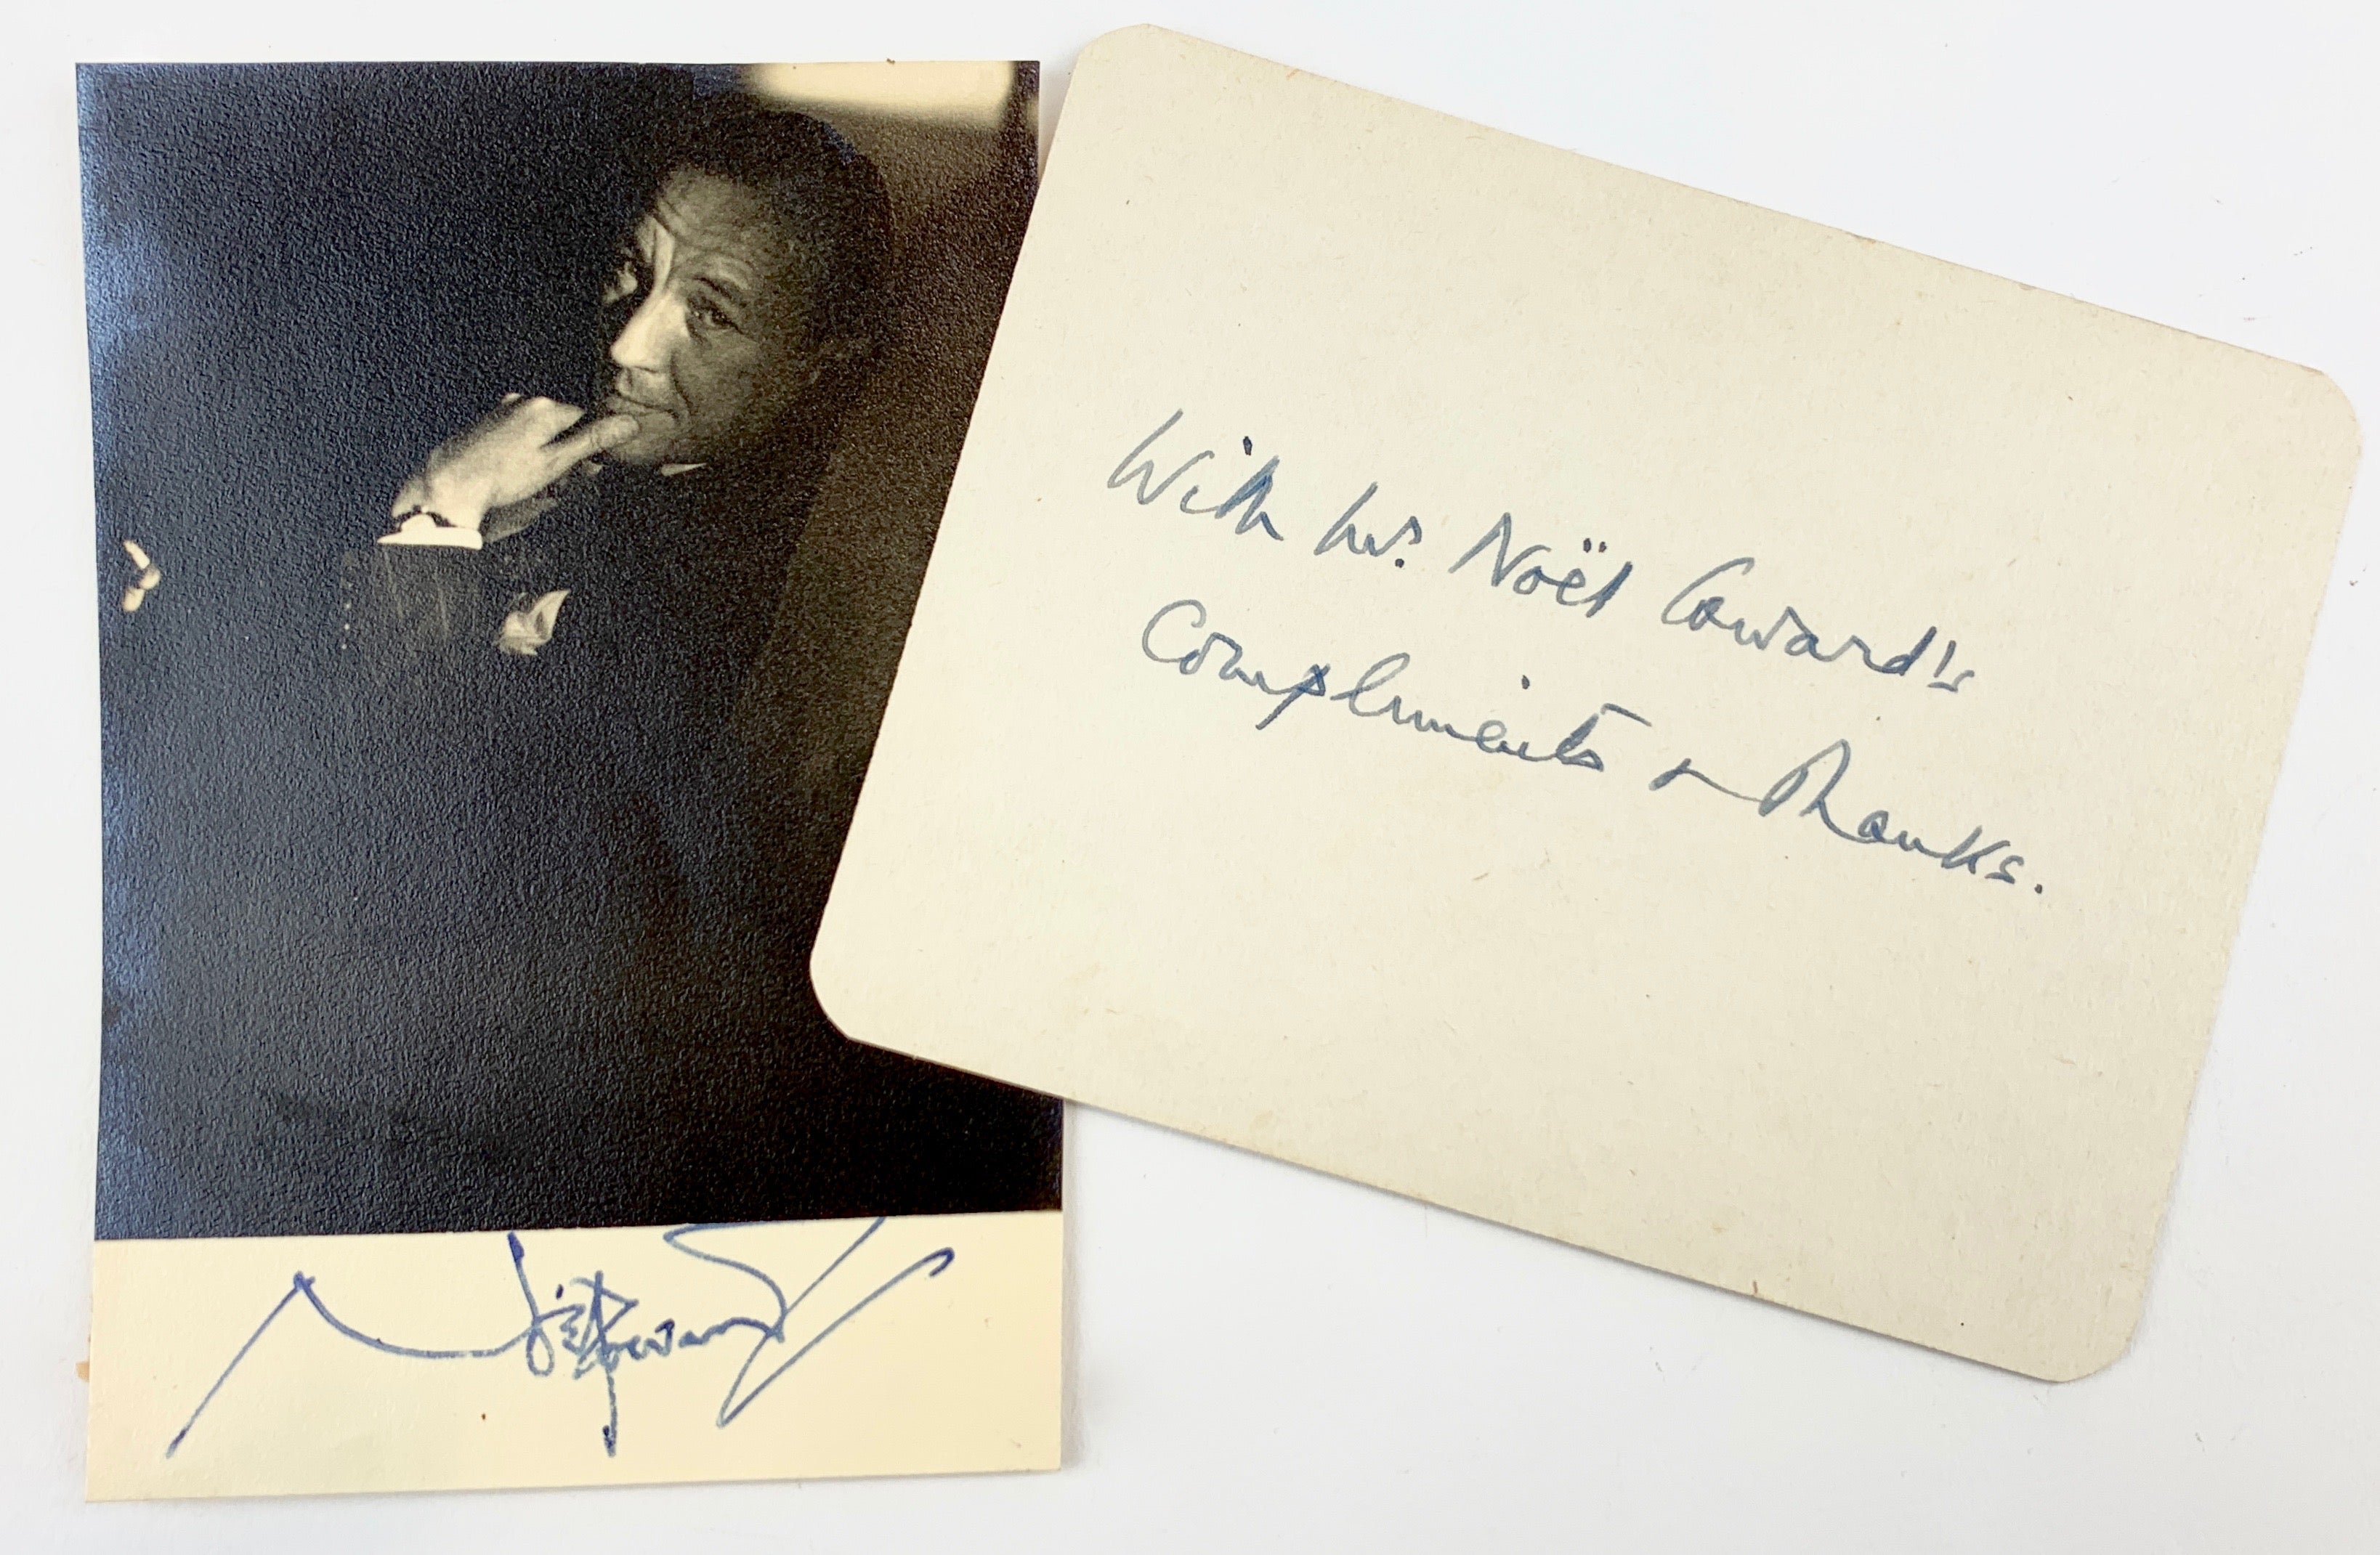 With Mr. Noël Coward's
Compliments & Thanks.
Noël Coward